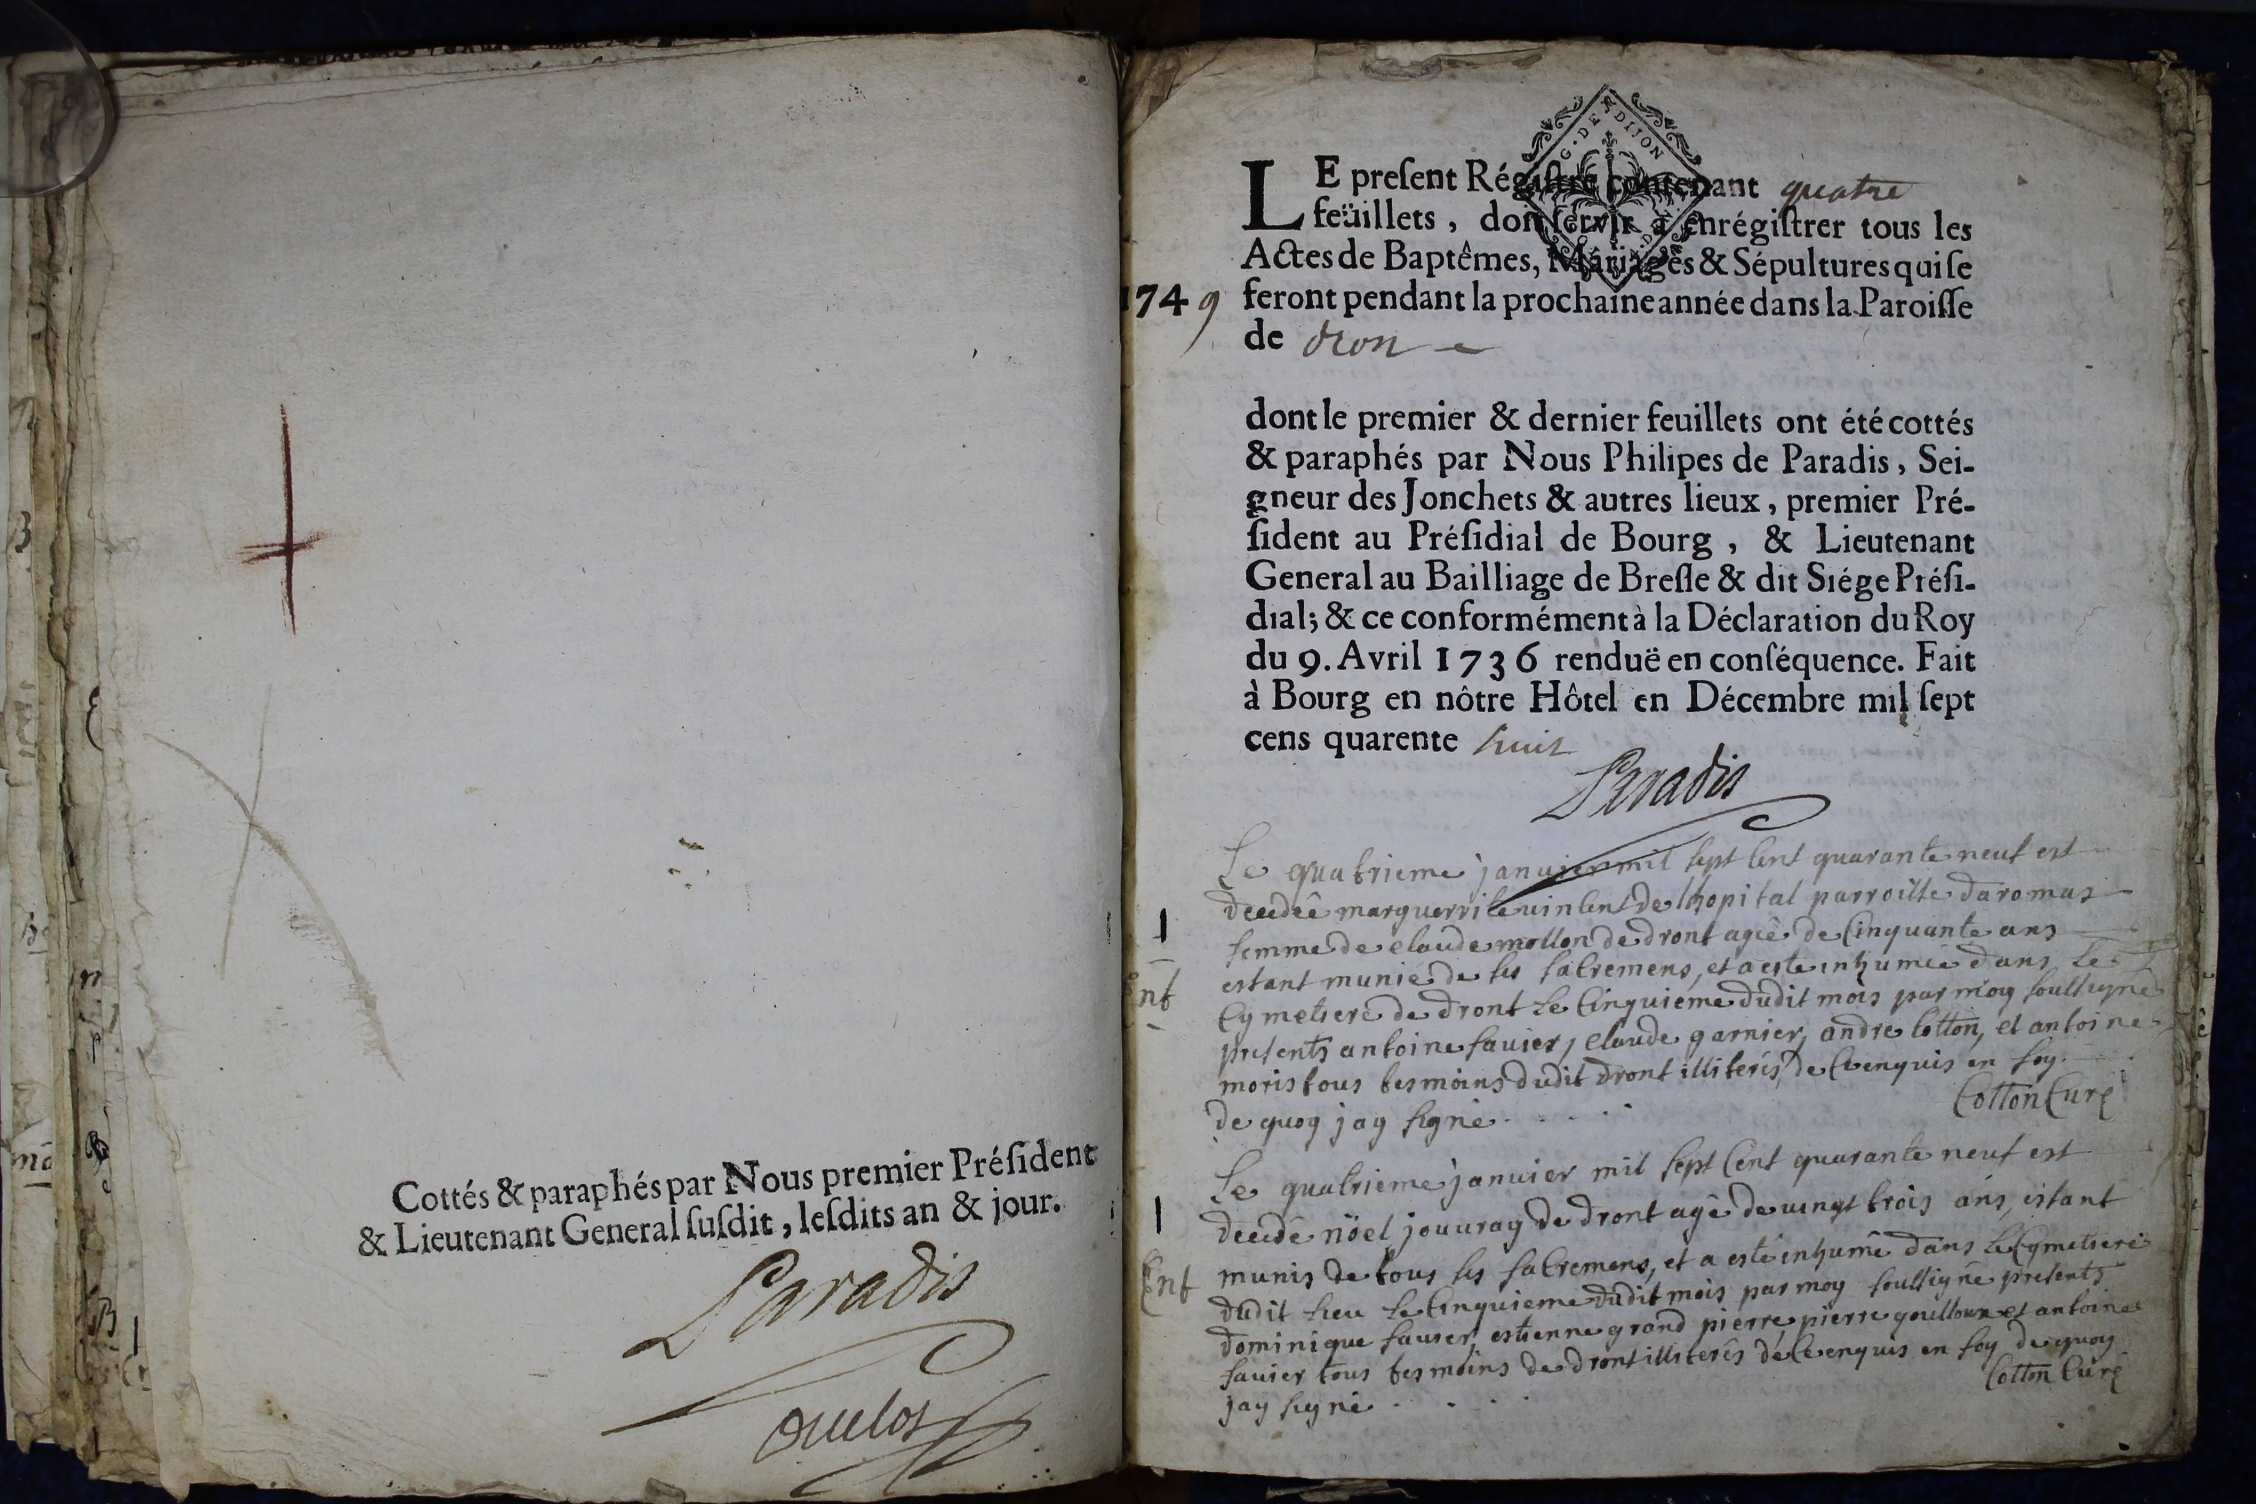 Cottés & paraphés par Nous premier Préſident
& Lieutenant General ſuſdit, leſdits an & jour.
Paradis
G. DE DIJON
LE preſent Régiſtre contenant quatre
feüillets, doit ſervir à enrégiſtrer tous les
Actes de Baptêmes, Mariages & Sépultures qui ſe
1749 feront pendant la prochaine année dans la Paroiſſe
de dron
dont le premier & dernier feuillets ont été cottés
& paraphés par Nous Philipes de Paradis, Sei-
gneur des Jonchets & autres lieux, premier Pré-
ſident au Préſidial de Bourg, & Lieutenant
General au Bailliage de Breſſe & dit Siége Préſi-
dial; & ce conformément à la Déclaration du Roy
du 9. Avril 1736 renduë en conſéquence. Fait
à Bourg en nôtre Hôtel en Décembre mil ſept
cens quarente huit
Paradis
Le quatrieme janvier mil sept cent quarante neuf est
decedée marguerrite vincent de lhopital parroisse daromas
1
femme de claude mollon de dront agée de cinquante ans
estant munie de ses sacremens, et a esté inhumée dans le
Ent
cymetiere de dront le cinquieme dudit mois par moy soussigné
presents antoine favier, claude garnier, andre cotton, et antoine
moris tous tesmoins dudit dront illiterés de ce enquis en foy
de quoy jay signé
Cotton Curé
Le quatrieme janvier mil sept cent quarante neuf est
1
decedé nöel jouvray de dront agé de vingt trois ans, estant
munis de tous ses sacremens, et a esté inhumé dans le cymetiere
Ent
dudit lieu le cinquieme dudit mois par moy soussigné presents
dominique favier, estienne grand pierre, pierre goulloux et antoine
favier tous tesmoins de dront illiterés de ce enquis en foy de quoy
jay signé
Cotton Curé